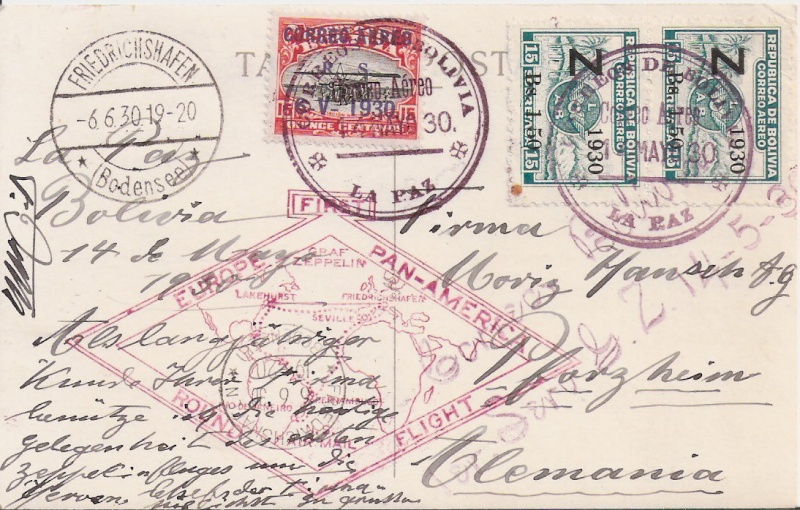 FRIEDRICHSHAFEN
-6.6.30.19-20
(Bodensee)
CORREO AEREO
R. S.
Correo Aéreo
6-V-1930
QUINCE CENTAVOS
15
BOLIVIA
30.
LA PAZ
Z
1930
Bs. 1.50
REPUBLICA DE BOLIVIA
CORREO AEREO
15 CENTAVOS 15
Z
1930
Bs. 1.50
REPUBLICA DE BOLIVIA
CORREO AEREO
CENTAVOS 15
Correo Aereo
MAY 30
LA PAZ
La Paz
Bolivia
14 de Mayo
FIRST
EUROPE
PAN-AMERICA
ROUND
FLIGHT
GRAF
ZEPPELIN
LAKEHURST
FRIEDRICHSHAFEN
SEVILLE
PERNAMBUCO
RIO DE JANEIRO
AIR MAIL
Als langjähriger
Kunde Ihrer Firma
benütze ich die heutige
gelegenheit des ersten
Zeppelinfluges um die
Herren
zu grüssen
Firma
Moriz Hausch A.G
Pforzheim
Alemania